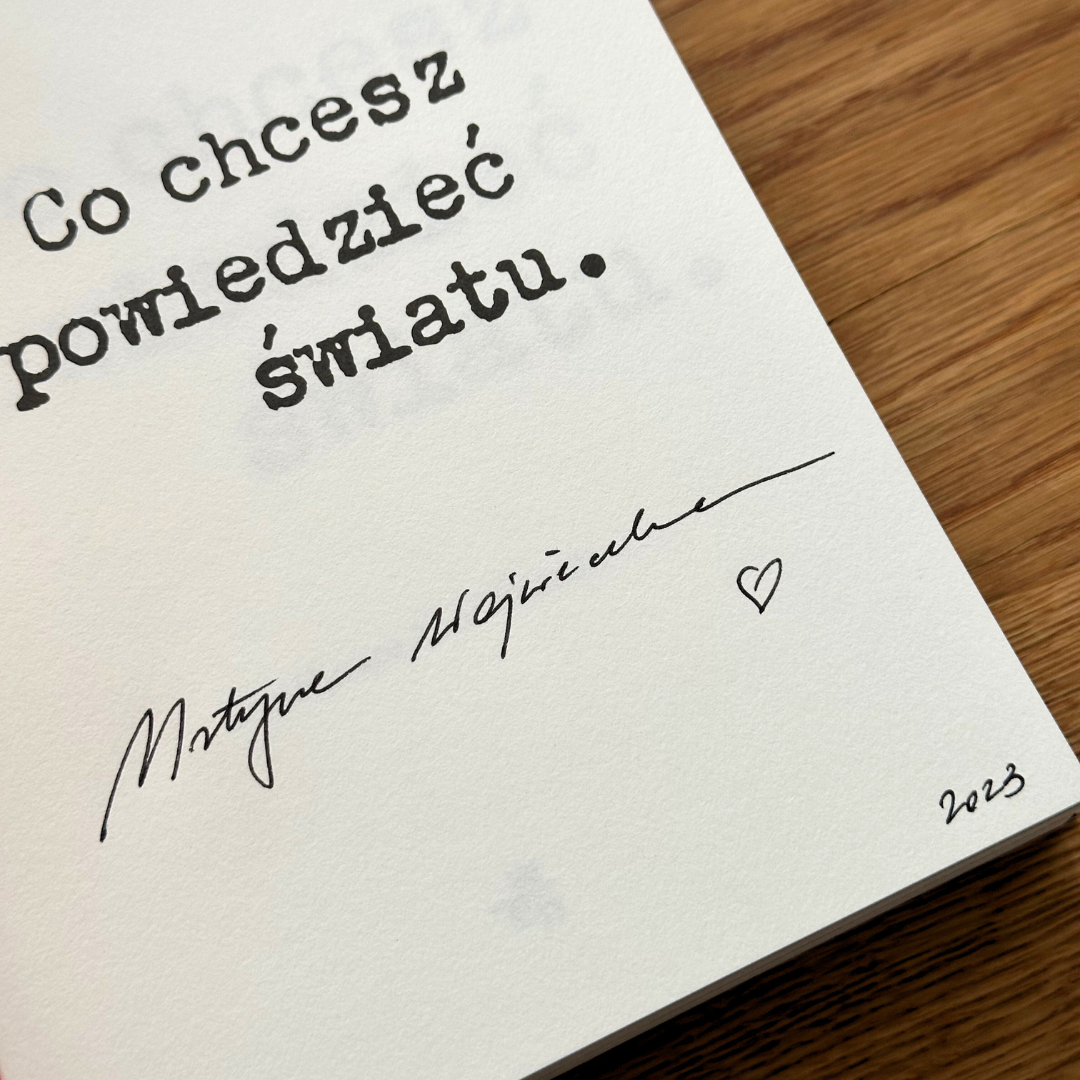 Co chcesz
powiedzieć
światu.
Martyna Wojciechowska
2023